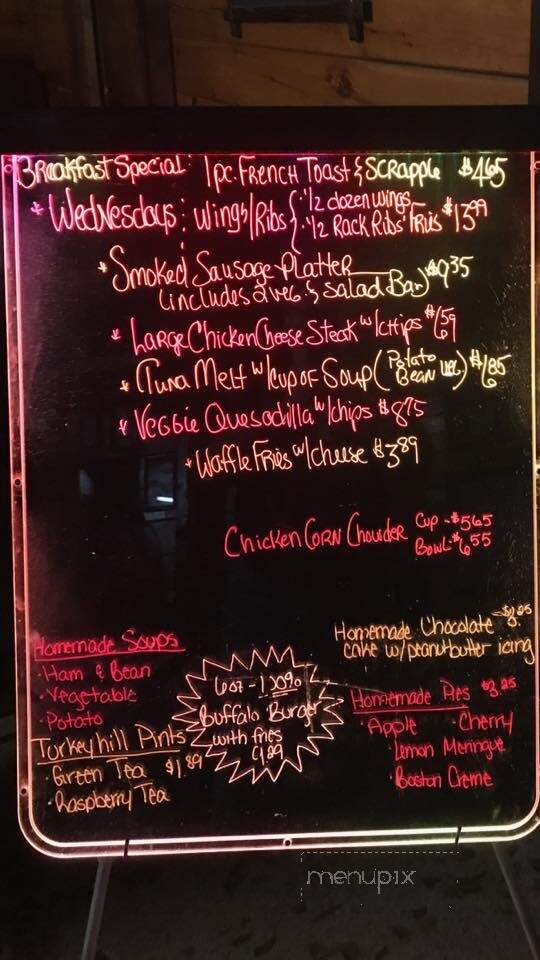 Breakfast Special: 1pc. French Toast & Scrapple $4.65
* Wednesdays: Wings/Ribs { · 1/2 dozen wings
· 1/2 Rack Ribs Fries $13.99
* Smoked Sausage Platter $9.35
(includes 2 veg. & Salad Bar)
* Large Chicken Cheese Steak w/chips
* Tuna Melt w/cup of Soup (Potato
Bean
* Veggie Quesadilla w/chips $8.75
* Waffle Fries w/cheese $3.89
Chicken Corn Chowder Cup - $5.65
Bowl - $6.55
Homemade Chocolate
cake w/peanutbutter icing
Homemade Soups
· Ham & Bean
· Vegetable
· Potato
Turkeyhill Pints
· Green Tea $1.89
· Raspberry Tea
6oz -
Buffalo Burger
with fries
Homemade Pies $3.25
· Apple · Cherry
· Lemon Meringue
· Boston Creme
menupix